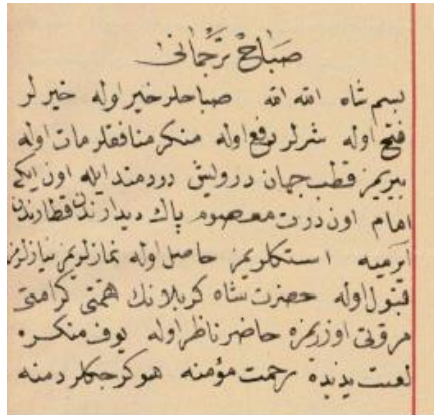 صباح ترجمانی
بسم شاه الله الله صباحلر خیر اوله خیرلر
فتح اوله شرلر دفع اوله منکر منافقلر مات اوله
پیریمز قطب جهان درویش دردمند ایله اون ایکی
امام اون درت معصوم پاك دیدارندن قطارندن
آیرمیه استکلریمز حاصل اوله نمازلریمز نیازلریمز
قبول اوله حضرت شاه کربلانك همتی کرامتی
مروتی اوزریمزه حاضر ناظر اوله یوف منکره
لعنت یزیده رحمت مؤمنه هو کرچکلر دمنه